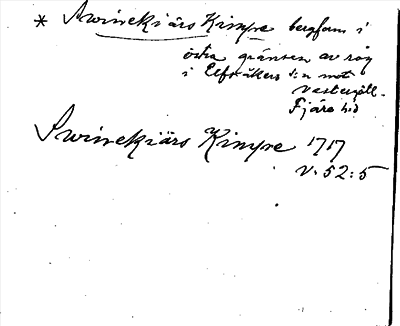 * Swinekiärs Kimpe bergfam i
östra gränsen av röq
i Elfsåkers s:n mot
Västergötl.
Fjäre hd
Swinekiärs Kimpe 1717
V. 52:5